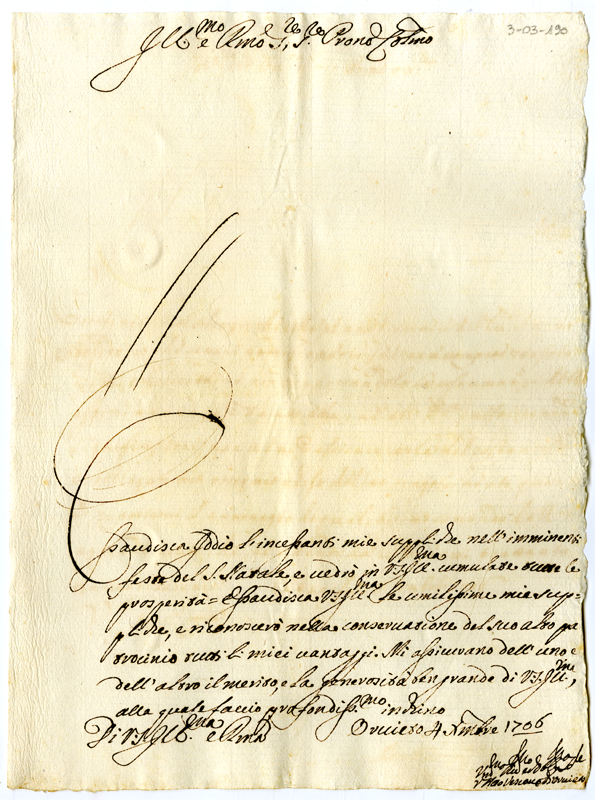 3-03-190
Ill.mo e Rmo Sre, Sre Prone Colmo
Esaudisca Iddio l'incessanti mie suppliche nell'imminenti
feste del S. Natale, e vedrò in V.S. Illma cumulate tutte le
prosperità = Esaudisca V.S. Illma le umilissime mie sup=
pliche, e riconoscerò nella conservazione del suo alto pa
trocinio tutti li miei vantaggi. Mi assicurano dell'uno e
dell'altro il merito, e la generosità ben grande di V.S. Illma,
alla quale faccio profondiss.mo inchino
Di V.S. Ill.ma e Rma Orvieto 4 Xmbre 1706